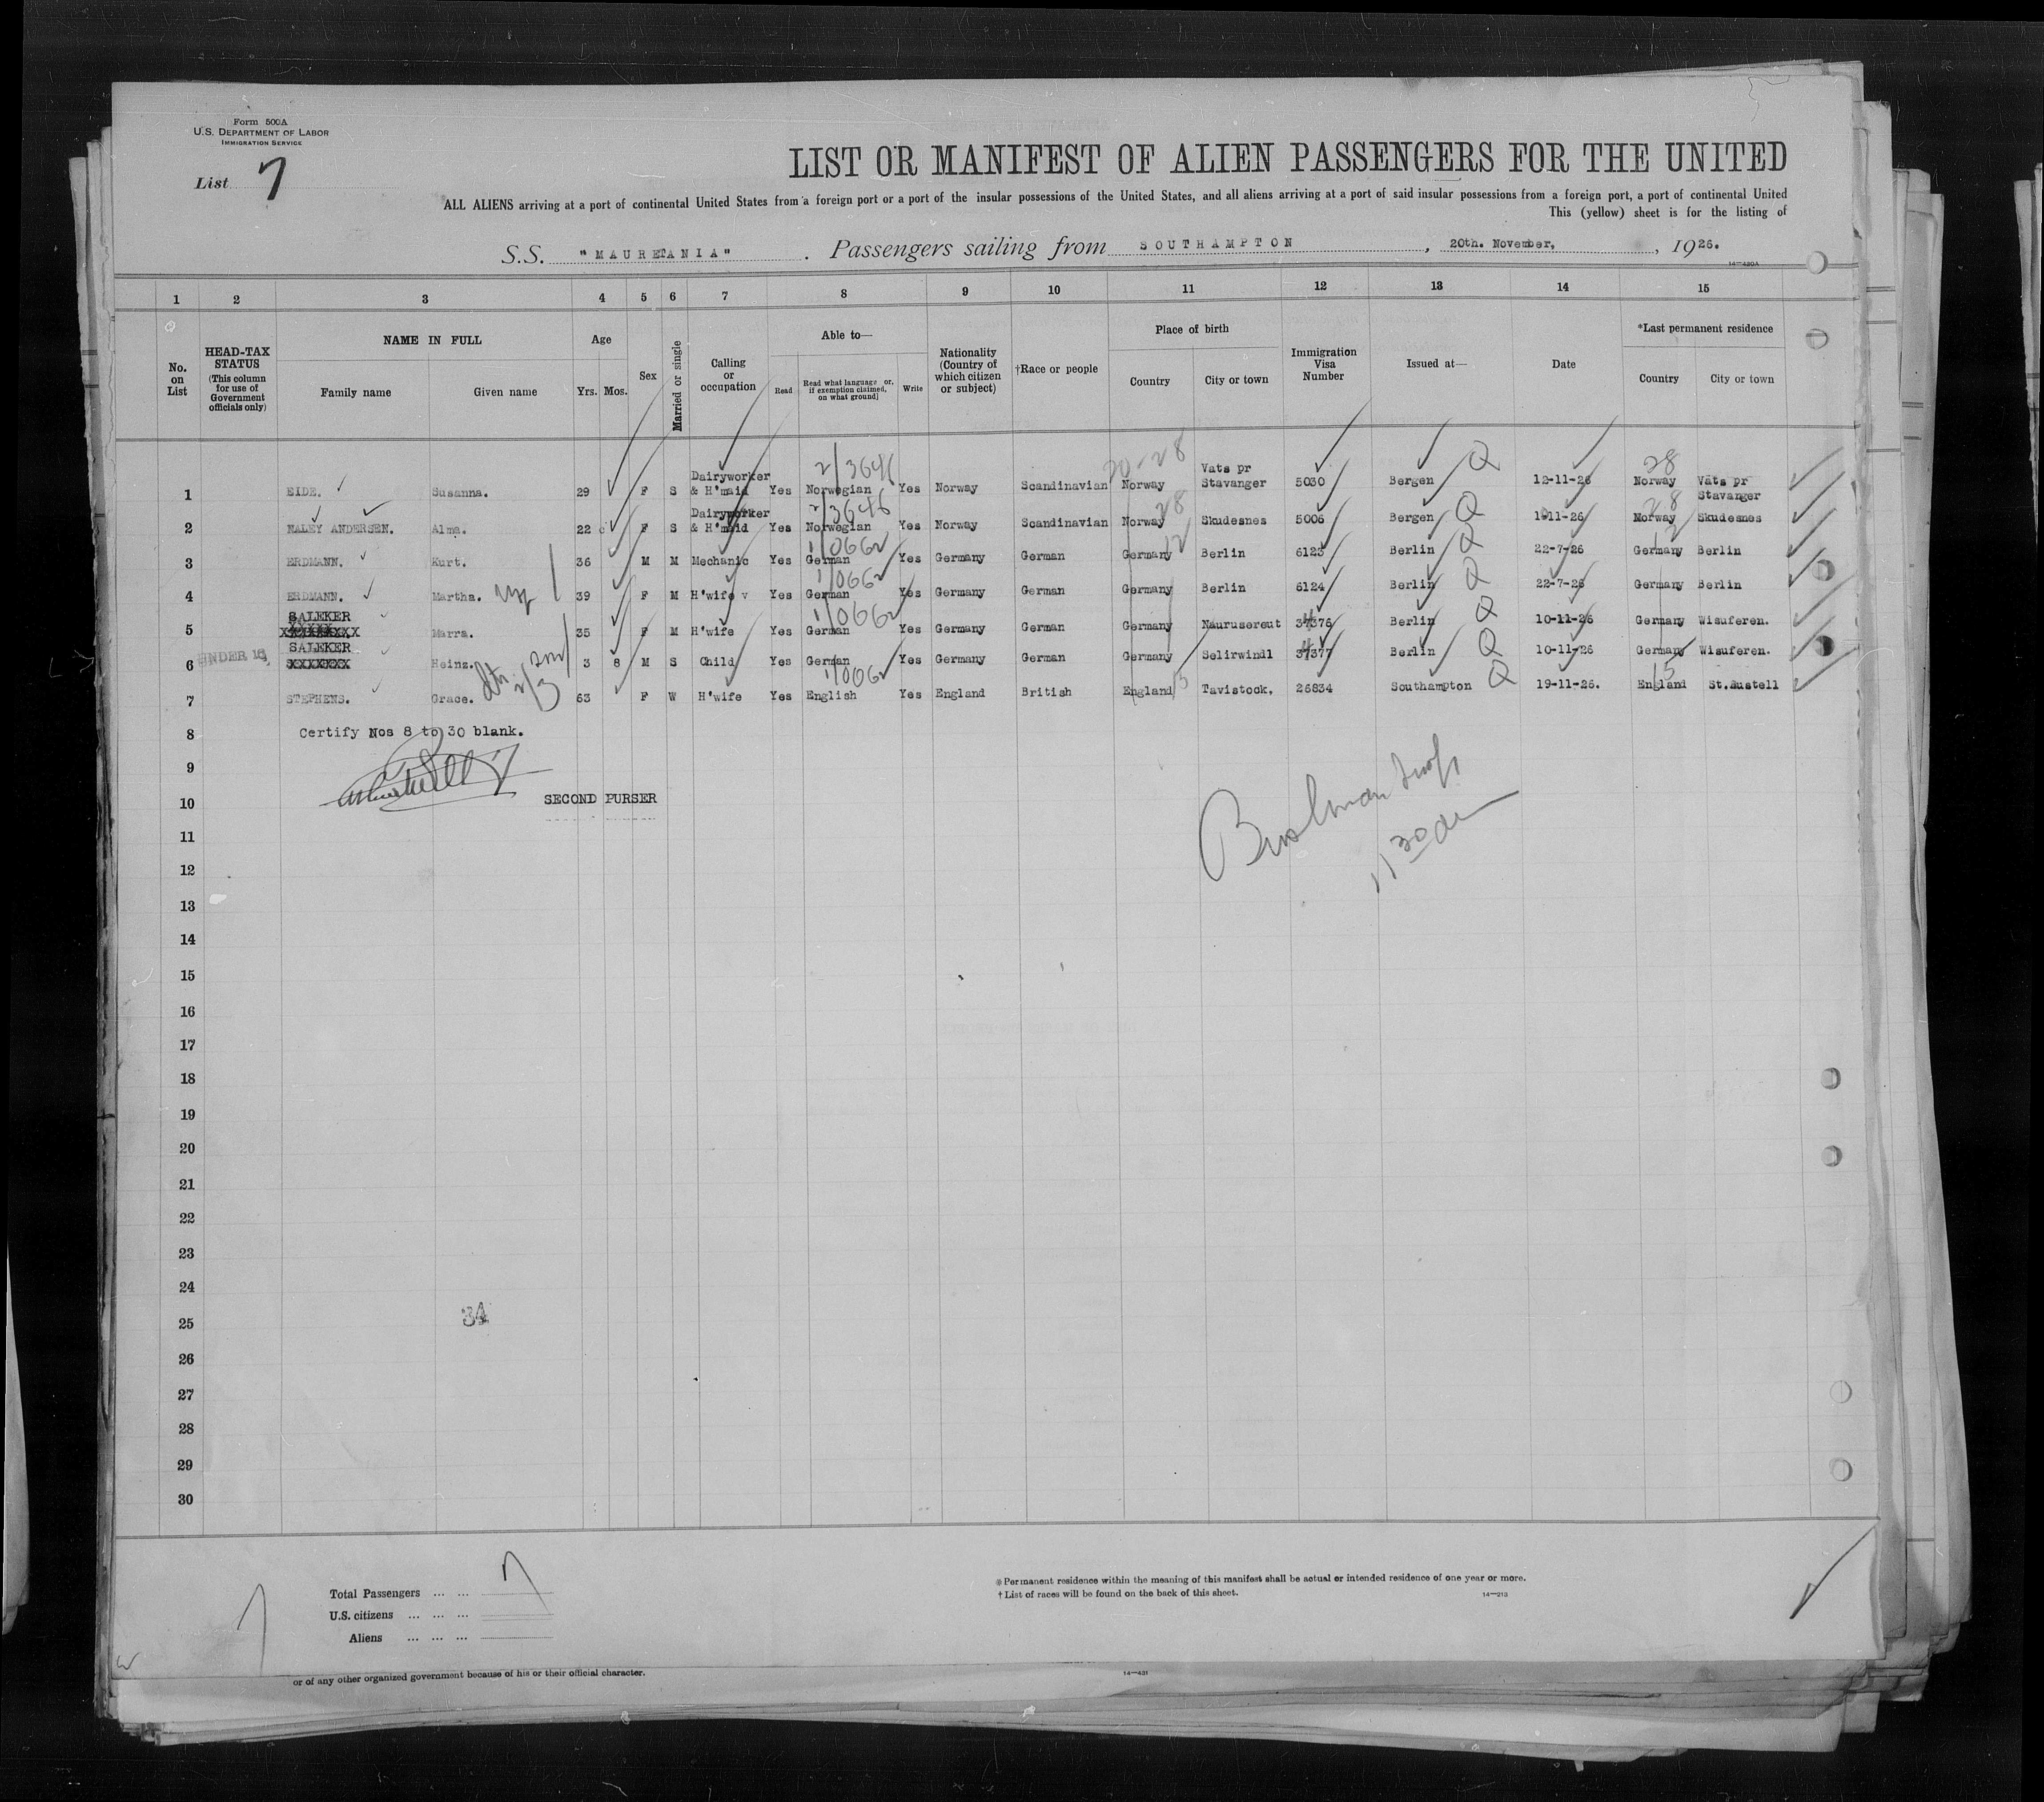 Form 500A
U.S. DEPARTMENT OF LABOR
IMMIGRATION SERVICE
List 7
LIST OR MANIFEST OF ALIEN PASSENGERS FOR THE UNITED
ALL ALIENS arriving at a port of continental United States from a foreign port or a port of the insular possessions of the United States, and all aliens arriving at a port of said insular possessions from a foreign port, a port of continental United
This (yellow) sheet is for the listing of
S.S. "MAURETANIA" . Passengers sailing from SOUTHAMPTON , 20th. November, , 1926.
14—430A
1 2 3 4 5 6 7 8 9 10 11 12 13 14 15
No. on List
HEAD-TAX STATUS (This column for use of Government officials only)
NAME IN FULL
Family name Given name
Age
Yrs. Mos.
Sex
Married or single
Calling or occupation
Able to—
Read Read what language or, if exemption claimed, on what ground] Write
Nationality (Country of which citizen or subject)
†Race or people
Place of birth
Country City or town
Immigration Visa Number
Issued at—
Date
*Last permanent residence
Country City or town
2/3646 20-28 28
1 EIDE. Susanna. 29 F S Dairyworker & H'maid Yes Norwegian Yes Norway Scandinavian Norway Vats pr Stavanger 5030 Bergen Q 12-11-26 Norway Vats pr Stavanger
2/3646 28 28
2 NALEY ANDERSEN. Alma. 22 F S Dairyworker & H'maid Yes Norwegian Yes Norway Scandinavian Norway Skudesnes 5006 Bergen Q 1-11-26 Norway Skudesnes
1/0662 12 12
3 ERDMANN. Kurt. 36 M M Mechanic Yes German Yes Germany German Germany Berlin 6123 Berlin Q 22-7-26 Germany Berlin
1/0662
4 ERDMANN. Martha. 39 F M H'wife v Yes German Yes Germany German Germany Berlin 6124 Berlin Q 22-7-26 Germany Berlin
1/0662
5 SALEKER XXXXXXXX Marra. 35 F M H'wife Yes German Yes Germany German Germany Naurusereut 37376 Berlin Q 10-11-26 Germany Wisuferen.
UNDER 16
6 SALEKER XXXXXXX Heinz. 3 8 M S Child Yes German Yes Germany German Germany Selirwindl 37377 Berlin Q 10-11-26 Germany Wisuferen.
1/0662 15 15
7 STEPHENS. Grace. 63 F W H'wife Yes English Yes England British England Tavistock, 26834 Southampton Q 19-11-26. England St.Austell
8 Certify Nos 8 to 30 blank.
9
10 SECOND PURSER
11
12
13
14
15
16
17
18
19
20
21
22
23
24
25 34
26
27
28
29
30
Total Passengers ... ... 7
U.S. citizens ... ... ...
Aliens ... ... ...
* Permanent residence within the meaning of this manifest shall be actual or intended residence of one year or more.
† List of races will be found on the back of this sheet. 14—213
or of any other organized government because of his or their official character. 14—431